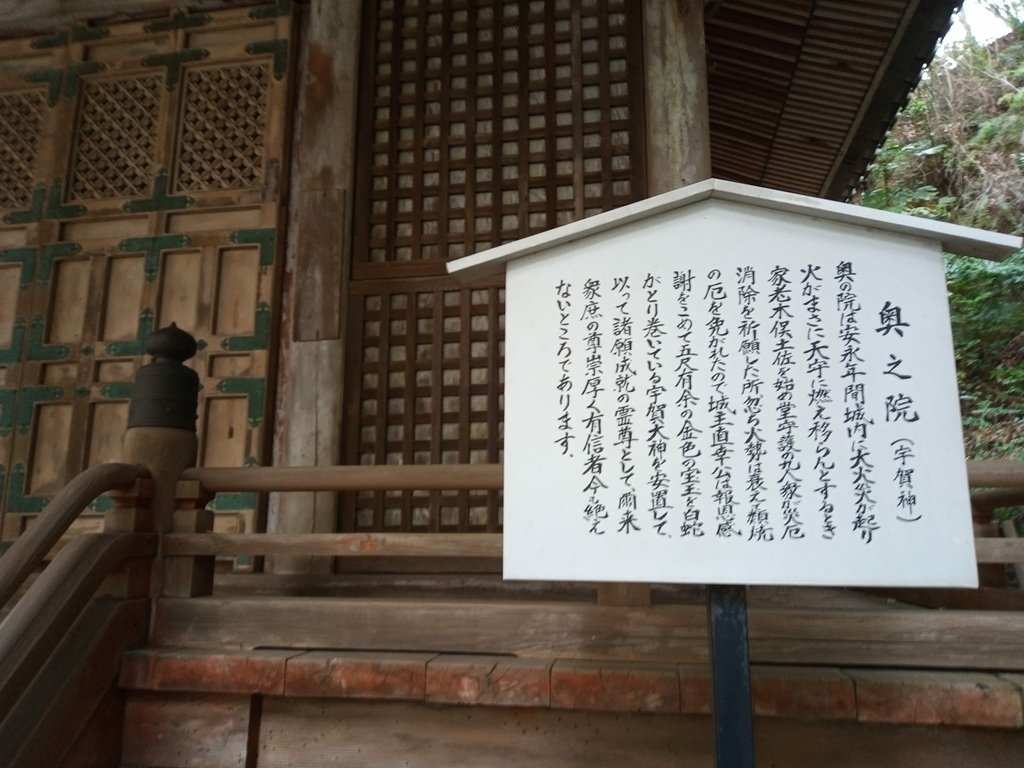 奥之院（宇賀神）
奥の院は安永年間城内に大火災が起り
火がまさに天守に燃え移らんとするとき
家老木俣土佐を始め堂守護の九人衆が災厄
消除を祈願した所忽ち火勢は衰え類焼
の厄を免がれたので城主直幸公は報恩感
謝をこめて五尺有余の金色の宝玉を白蛇
がとり巻いている宇賀大神を安置して、
以って諸願成就の霊尊として、爾来
衆庶の尊崇厚く有信者今も絶え
ないところであります。